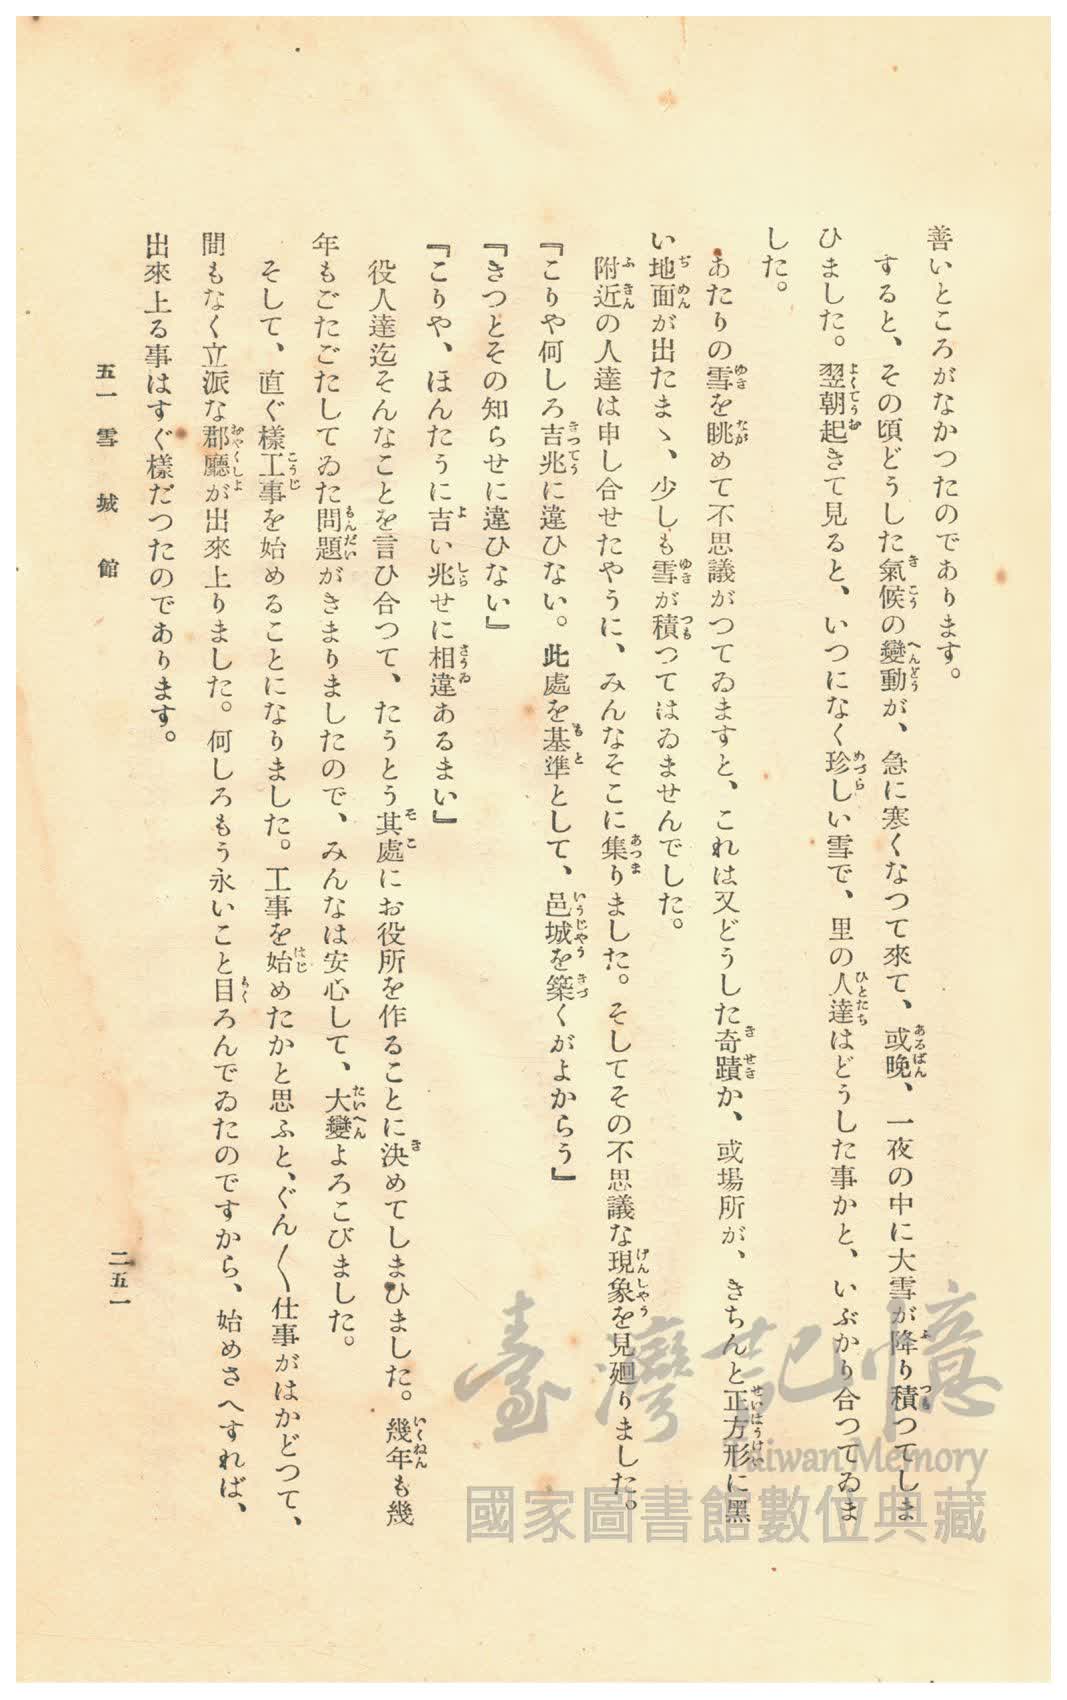 善いところがなかつたのであります。
すると、その頃どうした氣候の變動が、急に寒くなつて來て、或晩、一夜の中に大雪が降り積つてしま
ひました。翌朝起きて見ると、いつになく珍しい雪で、里の人達はどうした事かと、いぶかり合つてゐま
した。
あたりの雪を眺めて不思議がつてゐますと、これは又どうした奇蹟か、或場所が、きちんと正方形に黑
い地面が出たまゝ、少しも雪が積つてはゐませんでした。
附近の人達は申し合せたやうに、みんなそこに集りました。そしてその不思議な現象を見廻りました。
『こりや何しろ吉兆に違ひない。此處を基準として、邑城を築くがよからう』
『きつとその知らせに違ひない』
『こりや、ほんたうに吉い兆せに相違あるまい』
役人達迄そんなことを言ひ合つて、たうとう其處にお役所を作ることに決めてしまひました。幾年も幾
年もごたごたしてゐた問題がきまりましたので、みんなは安心して、大變よろこびました。
そして、直ぐ樣工事を始めることになりました。工事を始めたかと思ふと、ぐん〱仕事がはかどつて、
間もなく立派な郡廳が出來上りました。何しろもう永いこと目ろんでゐたのですから、始めさへすれば、
出來上る事はすぐ樣だつたのであります。
五一 雪城館
二五一
臺灣記憶
Taiwan Memory
國家圖書館數位典藏